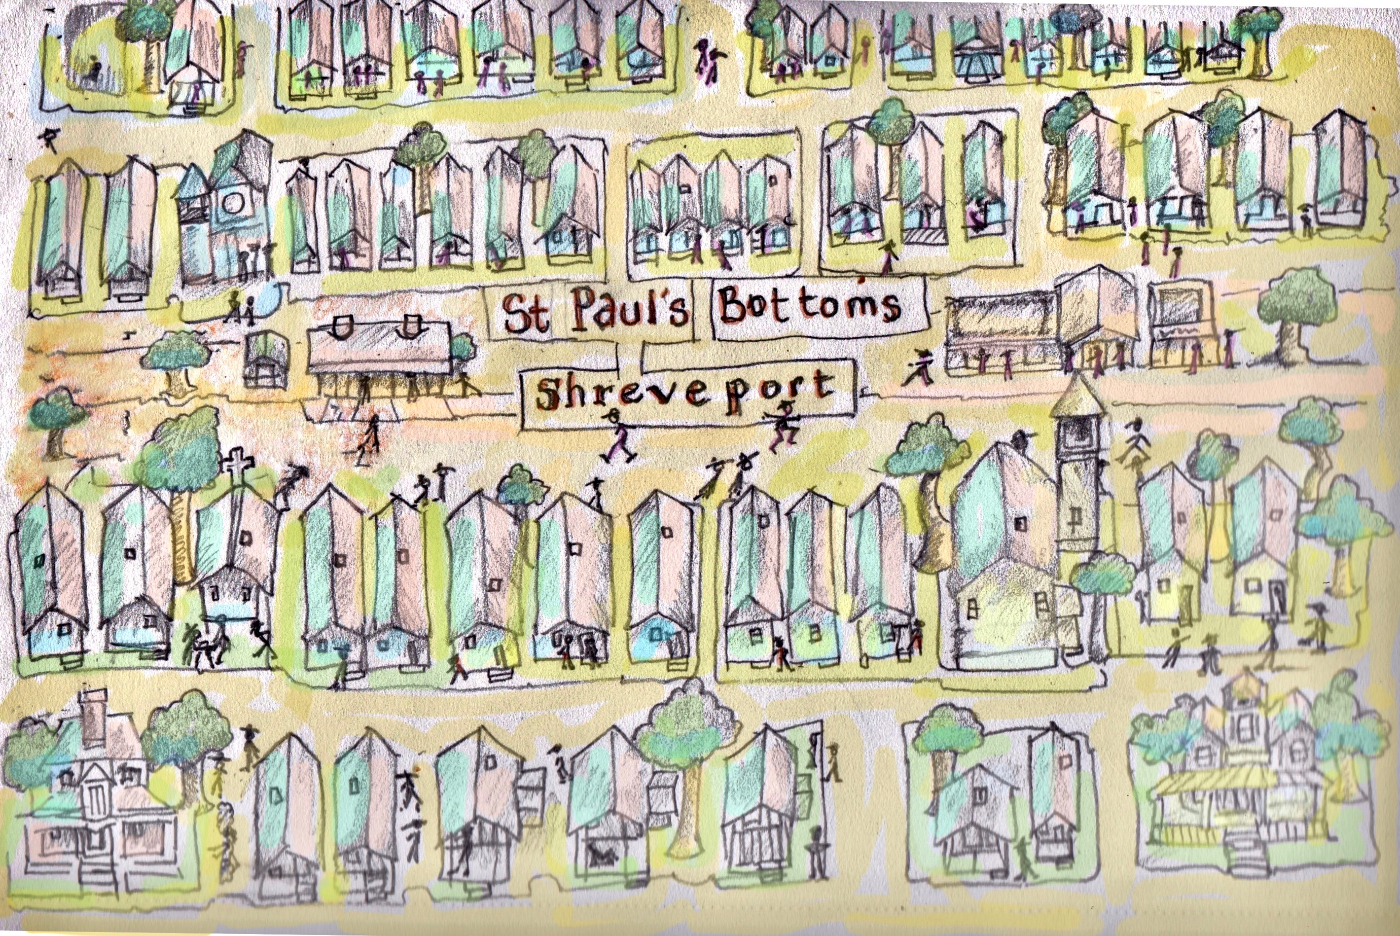 St Paul's Bottoms
Shreveport